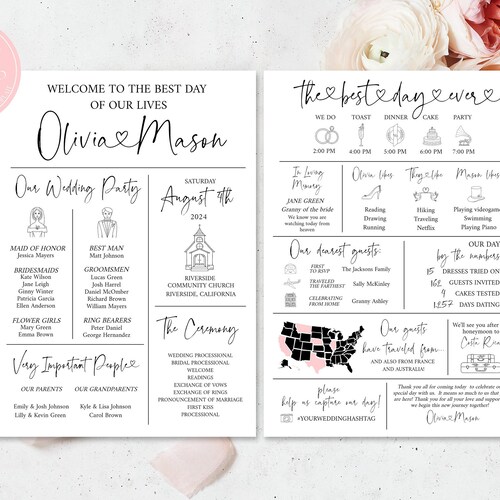 WELCOME TO THE BEST DAY
OF OUR LIVES
Olivia Mason
Our Wedding Party
MAID OF HONOR
Jessica Mayers
BRIDESMAIDS
Kate Wilson
Jane Leigh
Ginny Winter
Patricia Garcia
Ellen Anderson
FLOWER GIRLS
Mary Green
Emma Brown
BEST MAN
Matt Johnson
GROOMSMEN
Lucas Green
Josh Harrel
Daniel McOmber
Richard Brown
William Mayers
RING BEARERS
Peter Daniel
George Hernandez
Very Important People
OUR PARENTS
Emily & Josh Johnson
Lilly & Kevin Green
OUR GRANDPARENTS
Kyle & Lisa Johnson
Carol Brown
SATURDAY
August 4th
2024
RIVERSIDE
COMMUNITY CHURCH
RIVERSIDE, CALIFORNIA
The Ceremony
WEDDING PROCESSIONAL
BRIDAL PROCESSIONAL
WELCOME
READINGS
EXCHANGE OF VOWS
EXCHANGE OF RINGS
PRONOUNCEMENT OF MARRIAGE
FIRST KISS
PROCESSIONAL
the best day ever
WE DO TOAST DINNER CAKE PARTY
2:00 PM 4:00 PM 5:00 PM 6:00 PM 7:00 PM
In Loving
Memory
JANE GREEN
Granny of the bride
We know you are
watching today from
heaven
Olivia likes
Reading
Drawing
Running
They like
Hiking
Traveling
Netflix
Mason likes
Playing videogam
Swimming
Playing Piano
Our dearest guests:
FIRST
TO RSVP
The Jacksons Family
TRAVELED
THE FARTHEST
Sally McKinley
CELEBRATING
FROM HOME
Granny Ashley
OUR DAY
by the numbers
15 DRESSES TRIED ON
162 GUESTS INVITED
4 CAKES TESTED
1,257 DAYS DATING
Our guests
have traveled from...
AND ALSO FROM FRANCE
AND AUSTRALIA!
We'll see you after
honeymoon to
Costa Rica
please
help us capture our day!
#YOURWEDDINGHASHTAG
Thank you all for coming today to celebrate o
special day with us. It means so much to us that
are here! Thank you for all your love and suppor
we begin this new journey together!
Olivia Mason